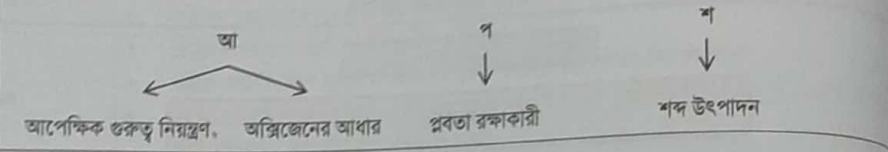 আ
প
শ
আপেক্ষিক গুরুত্ব নিয়ন্ত্রণ, অক্সিজেনের আধার প্লবতা রক্ষাকারী শব্দ উৎপাদন